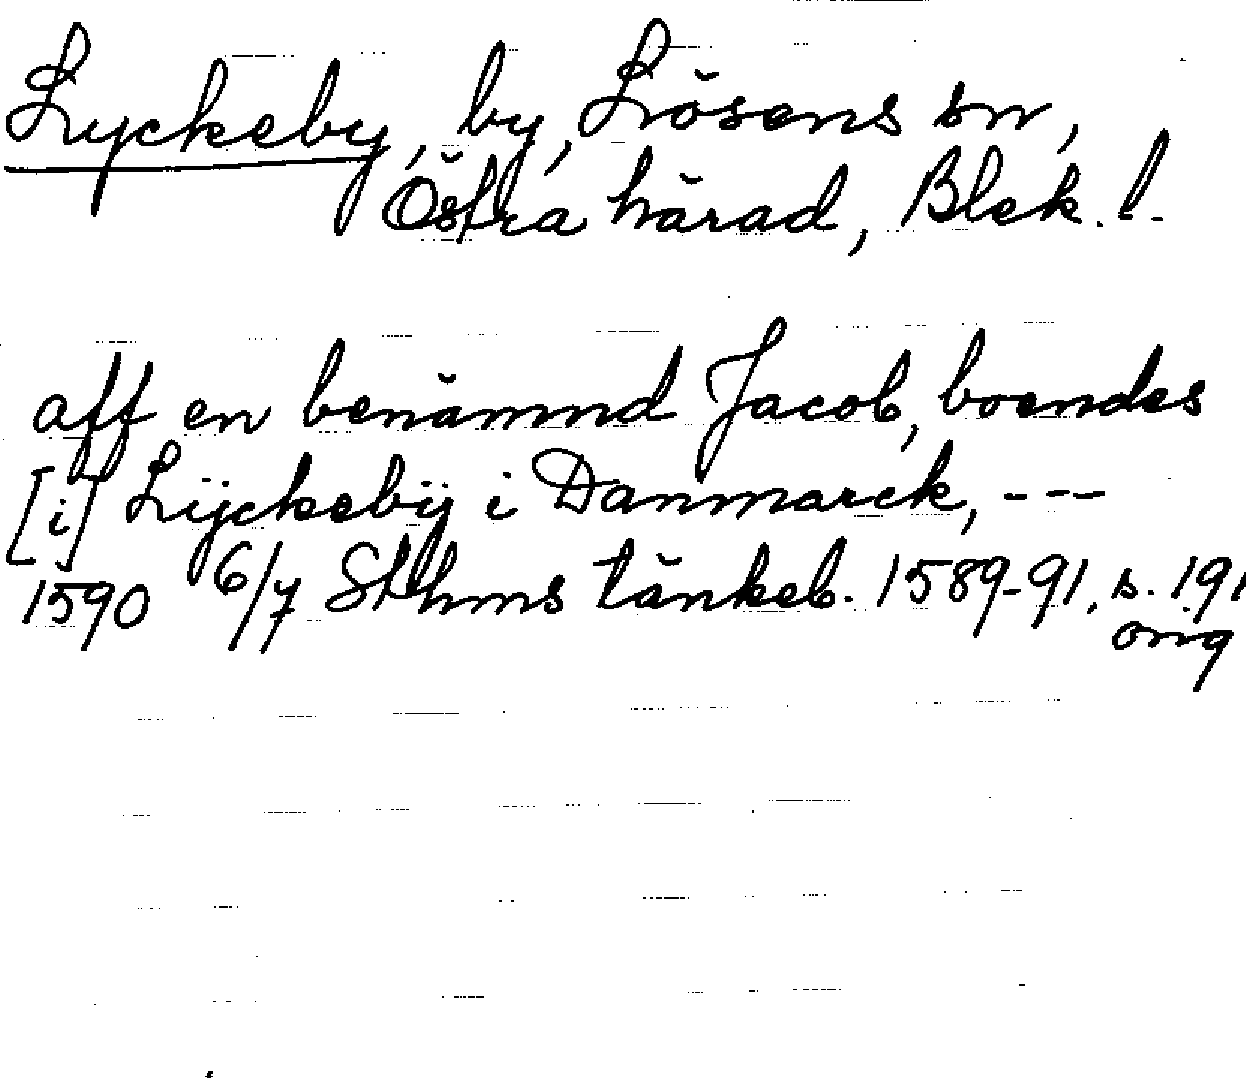 Lyckeby, by, Lösens sn,
Östra härad, Blek. l.
aff en benämnd Jacob, boendes
[i] Lÿckebÿ i Danmarck, ---
1590 6/7 Sthms tänkeb. 1589-91, s. 191
orig